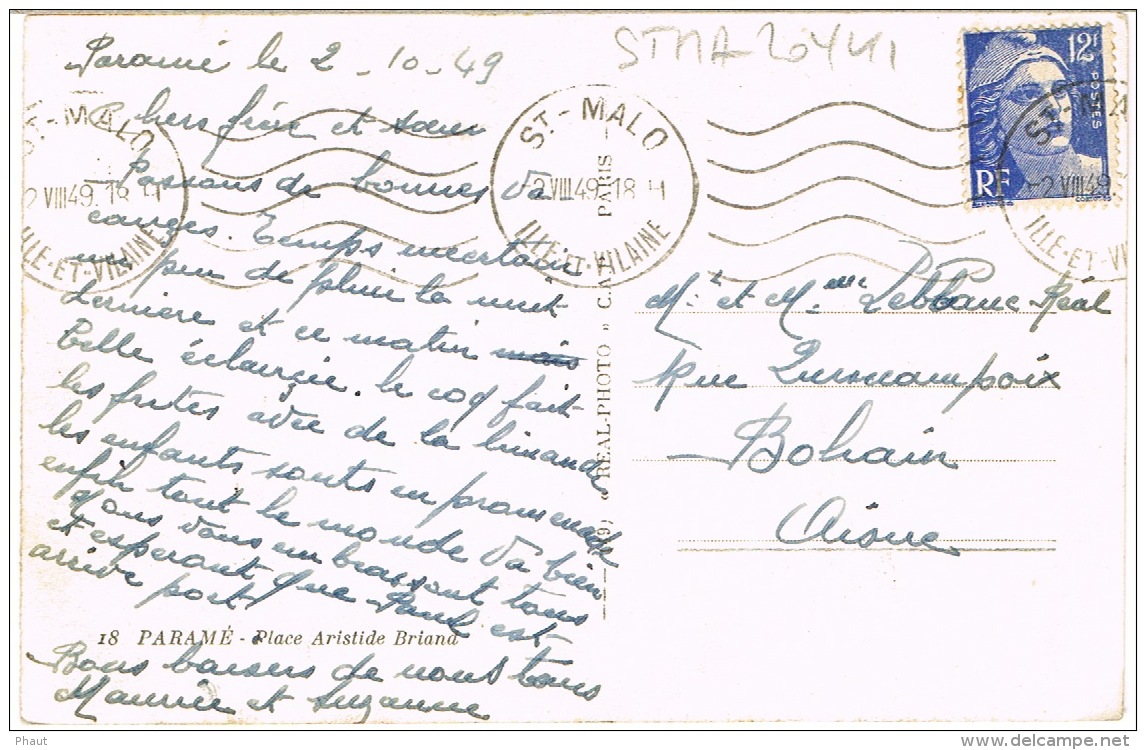 Paramé le 2-10-49
STMA
Chers frère et soeur
Passons de bonnes va
cances. Temps incertain
un peu de pluie la nuit
dernière et ce matin mais
belle éclaircie. le coq fait
les frites avec de la limande
les enfants sonts en promenade
enfin tout le monde va bien
nous vous embrassont tous
et esperant que Paul est
arrivé
18 PARAMÉ - Place Aristide Briand
Bons baisers de nous tous
Maurice et Suzanne
ST-MALO
2 VIII 49. 18 H
ILLE-ET-VILAINE
ST-MALO
-2 VIII 49. 18 H
ILLE-ET-VILAINE
« REAL-PHOTO » C.A.P. PARIS
12F
POSTES
RF
-2 VIII 49.
ILLE-ET-VI
Mr et Mme Leblanc-Réal
Rue Quincampoix
Bohain
Aisne
Phaut
www.delcampe.net